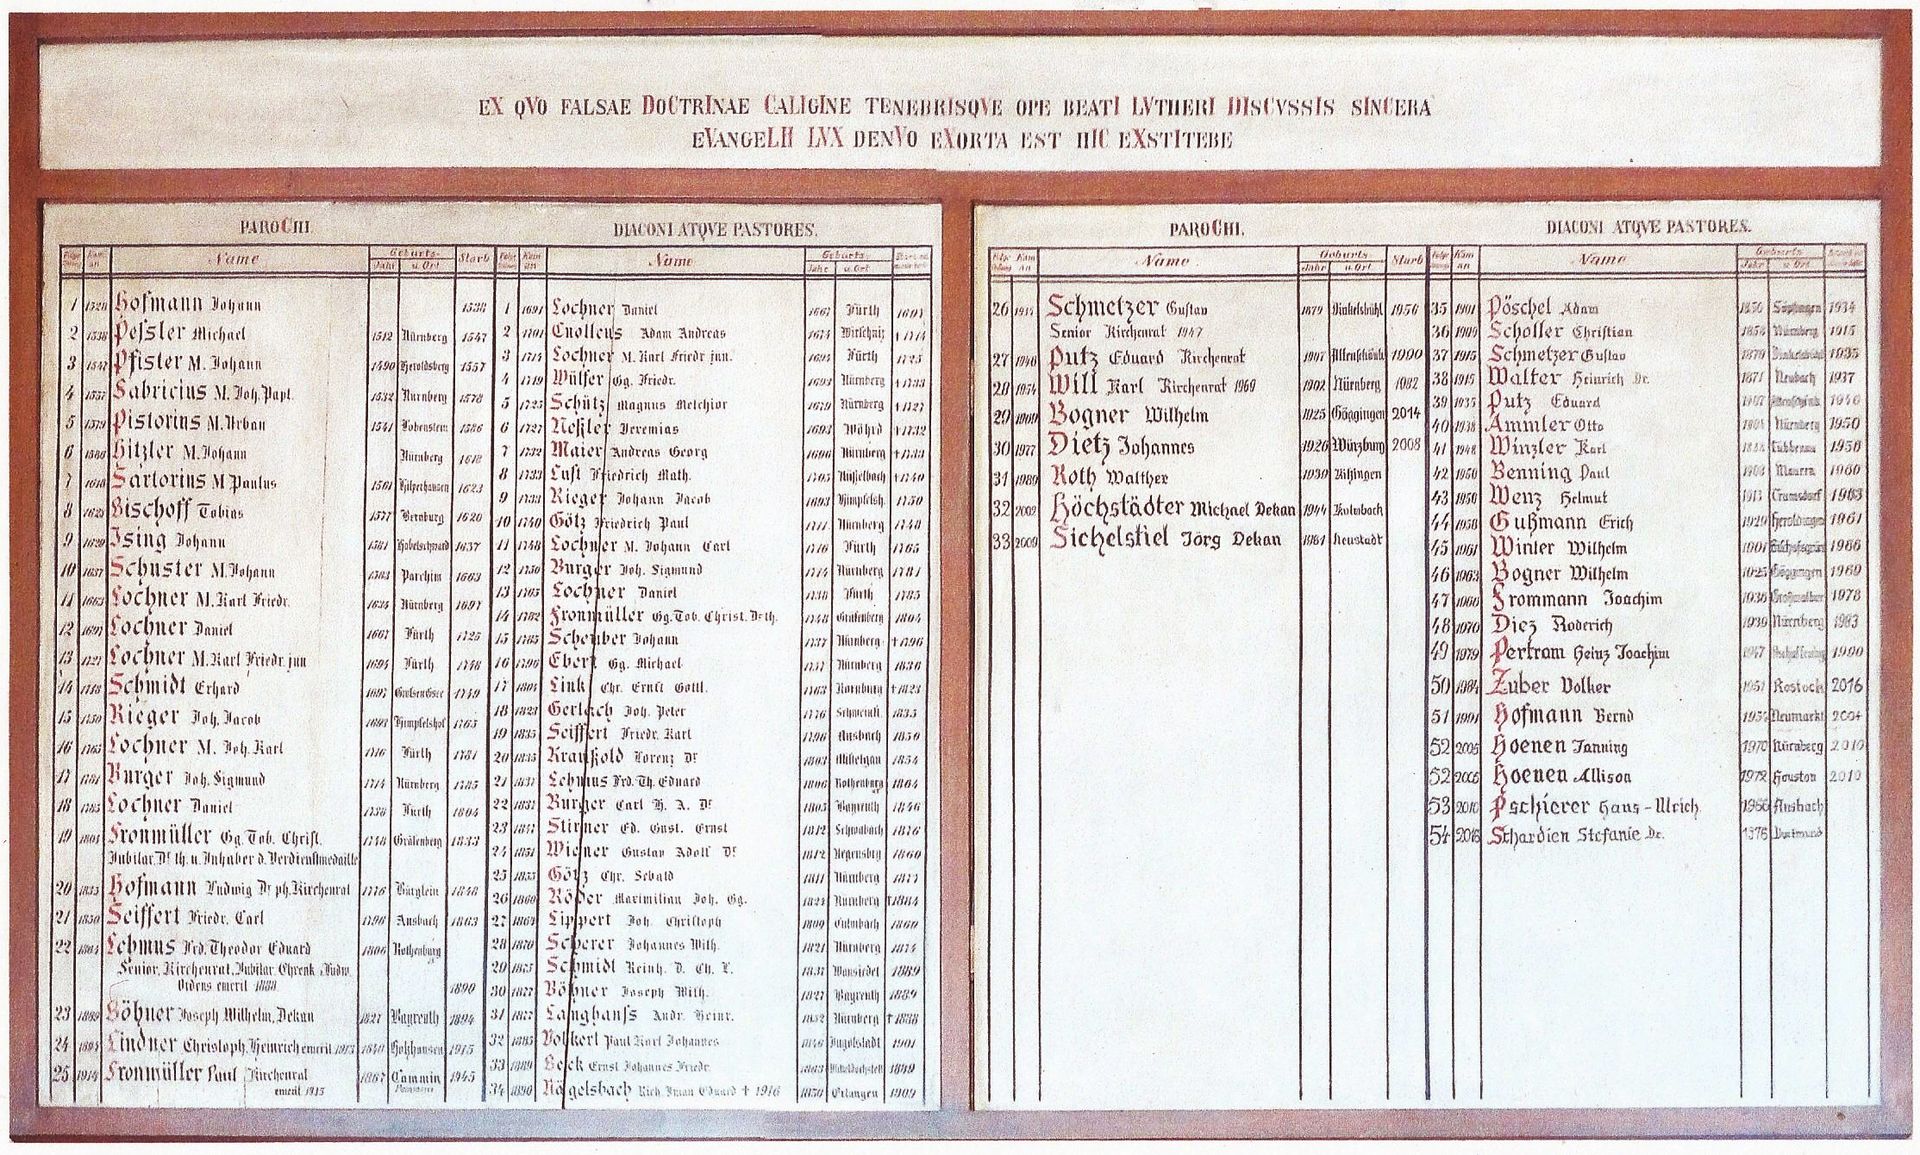 EX QVO FALSAE DOCTRINAE CALIGINE TENEBRISQVE OPE BEATI LVTHERI DISCVSSIS SINCERA
EVANGELII LVX DENVO EXORTA EST HIC EXSTITERE
PAROCHI
Name Geburts- Starb
Jahr u. Ort
1 1528 Hofmann Johann 1538
2 1538 Pessler Michael 1512 Nürnberg 1547
3 1547 Pfister M. Johann 1490 Heroldsberg 1557
4 1557 Sabricius M. Joh. Bapt. 1532 Nürnberg 1578
5 1579 Pistorius M. Urban 1541 Lobenstein 1586
6 1586 Hitzler M. Johann Nürnberg 1618
7 1618 Sartorius M Paulus 1561 1623
8 1623 Bischoff Tobias 1577 Bernburg
9 1629 Ising Johann 1581 Habelschward 1637
10 1637 Schuster M. Johann 1583 Parchim 1663
11 1663 Lochner M. Karl Friedr. 1634 Nürnberg 1697
12 1697 Lochner Daniel 1667 Fürth 1725
13 1727 Lochner M. Karl Friedr. jun 1694 Fürth 1748
14 1748 Schmidt Erhard 1697 1749
15 1750 Rieger Joh. Jacob 1693 Himpfelshof 1765
16 1765 Lochner M. Joh. Karl 1716 Fürth 1781
17 1781 Burger Joh. Sigmund 1714 Nürnberg 1785
18 1785 Lochner Daniel 1738 Fürth 1804
19 1804 Fronmüller Gg. Tob. Christ. 1748 Gräfenberg 1833
Jubilar. Dr. th. u. Inhaber d. Verdienstmedaille
20 1833 Hofmann Ludwig Dr. ph. Kirchenrat 1776 Bürglein 1848
21 1850 Seiffert Friedr. Carl 1796 Ansbach 1863
22 1864 Lehmus Frd. Theodor Eduard 1806 Rothenburg
Senior, Kirchenrat, Jubilar, Ehrenk. Ludw.
Ordens emerit 1888 1890
23 1889 Böhner Joseph Wilhelm, Dekan 1827 Bayreuth 1894
24 1894 Lindner Christoph, Heinrich emerit. 1913 1840 Holzhausen 1915
25 1914 Fronmüller Paul Kirchenrat 1867 Cammin 1945
DIACONI ATQVE PASTORES.
Name Geburts-
Jahr u. Ort
1 1691 Lochner Daniel 1667 Fürth 1697
2 1701 Cnolleus Adam Andreas 1674 †1714
3 1714 Lochner M. Karl Friedr. jun. 1694 Fürth 1725
4 1719 Wülfer Gg. Friedr. 1693 Nürnberg †1733
5 1725 Schütz Magnus Melchior 1679 Nürnberg †1727
6 1727 Neßler Jeremias 1693 Wöhrd †1732
7 1732 Maier Andreas Georg 1696 Nürnberg †1733
8 1733 Lust Friedrich Math. 1705 †1740
9 1733 Rieger Johann Jacob 1693 Himpfelsh. 1750
10 1740 Götz Friedrich Paul 1711 Nürnberg 1748
11 1748 Lochner M. Johann Carl 1716 Fürth 1765
12 1750 Burger Joh. Sigmund 1714 Nürnberg 1781
13 1765 Lochner Daniel 1738 Fürth 1785
14 1782 Fronmüller Gg. Tob. Christ. Dr. th. 1748 Gräfenberg 1804
15 1785 Scheuber Johann 1737 Nürnberg †1796
16 1796 Ebert Gg. Michael 1757 Nürnberg 1836
17 1804 Link Chr. Ernst Gottl. 1763 †1823
18 1823 Gerlach Joh. Peter 1776 1835
19 1835 Seiffert Friedr. Karl 1796 Ansbach 1850
20 1835 Kraußold Lorenz Dr 1803 Mistelgau 1854
21 1837 Lehmus Frd. Th. Eduard 1806 Rothenburg 1864
22 1837 Burger Carl H. A. Dr 1805 Bayreuth 1846
23 1847 Stirner Ed. Gust. Ernst 1812 Schwabach 1876
24 1851 Wiener Gustav Adolf Dr 1812 Regensbrg 1860
25 1855 Götz Chr. Sebald 1811 Nürnberg 1877
26 1860 Röder Maximilian Joh. Gg. 1824 Nürnberg †1884
27 1864 Lippert Joh. Christoph 1809 Culmbach 1869
28 1870 Scherer Johannes Wilh. 1821 Nürnberg 1874
29 1875 Schmidt Reinh. D. Ch. L. 1837 Wunsiedel 1889
30 1877 Böhner Joseph Wilh. 1827 Bayreuth 1889
31 1877 Langhanss Andr. Heinr. 1852 Nürnberg †1888
32 1885 Volkert Paul Karl Johannes 1846 Ingolstadt 1901
33 1889 Beck Ernst Johannes Friedr. 1863 1899
34 1890 Nägelsbach Eduard † 1916 1850 Erlangen 1909
PAROCHI.
Name Geburts Starb
Jahr u. Ort
26 1915 Schmetzer Gustav 1879 Dinkelsbühl 1956
Senior Kirchenrat 1947
27 1948 Putz Eduard Kirchenrat 1907 Altenschönb. 1990
28 1954 Will Karl Kirchenrat 1969 1902 Nürnberg 1982
29 1969 Bogner Wilhelm 1925 Göggingen 2014
30 1977 Dietz Johannes 1926 Würzburg 2008
31 1989 Roth Walther 1939 Kitzingen
32 2002 Höchstädter Michael Dekan 1944 Kulmbach
33 2009 Sichelstiel Jörg Dekan 1961 Neustadt
DIACONI ATQVE PASTORES.
Name Geburts
Jahr u. Ort
35 1901 Pöschel Adam 1856 1934
36 1909 Scholler Christian 1858 Nürnberg 1915
37 1915 Schmetzer Gustav 1879 Dinkelsbühl 1935
38 1915 Walter Heinrich Dr. 1871 Neubach 1937
39 1935 Putz Eduard 1907 1948
40 1938 Ammler Otto 1904 Nürnberg 1950
41 1948 Winzler Karl Lübbenau 1956
42 1950 Benning Paul 1908 1960
43 1956 Wenz Helmut 1913 1963
44 1958 Gußmann Erich 1929 Heroldingen 1961
45 1961 Winter Wilhelm 1901 1966
46 1963 Bogner Wilhelm 1925 Göggingen 1969
47 1966 Frommann Joachim 1936 1978
48 1970 Diez Roderich 1939 Nürnberg 1983
49 1979 Pertram Heinz Joachim 1947 1990
50 1984 Zuber Volker 1951 Rostock 2016
51 1991 Hofmann Bernd Neumarkt 2004
52 2005 Hoenen Janning 1970 Nürnberg 2010
52 2005 Hoenen Allison 1972 Houston 2010
53 2010 Pschierer Hans-Ulrich 1966 Ansbach
54 2016 Schardien Stefanie Dr. 1976 Dortmund